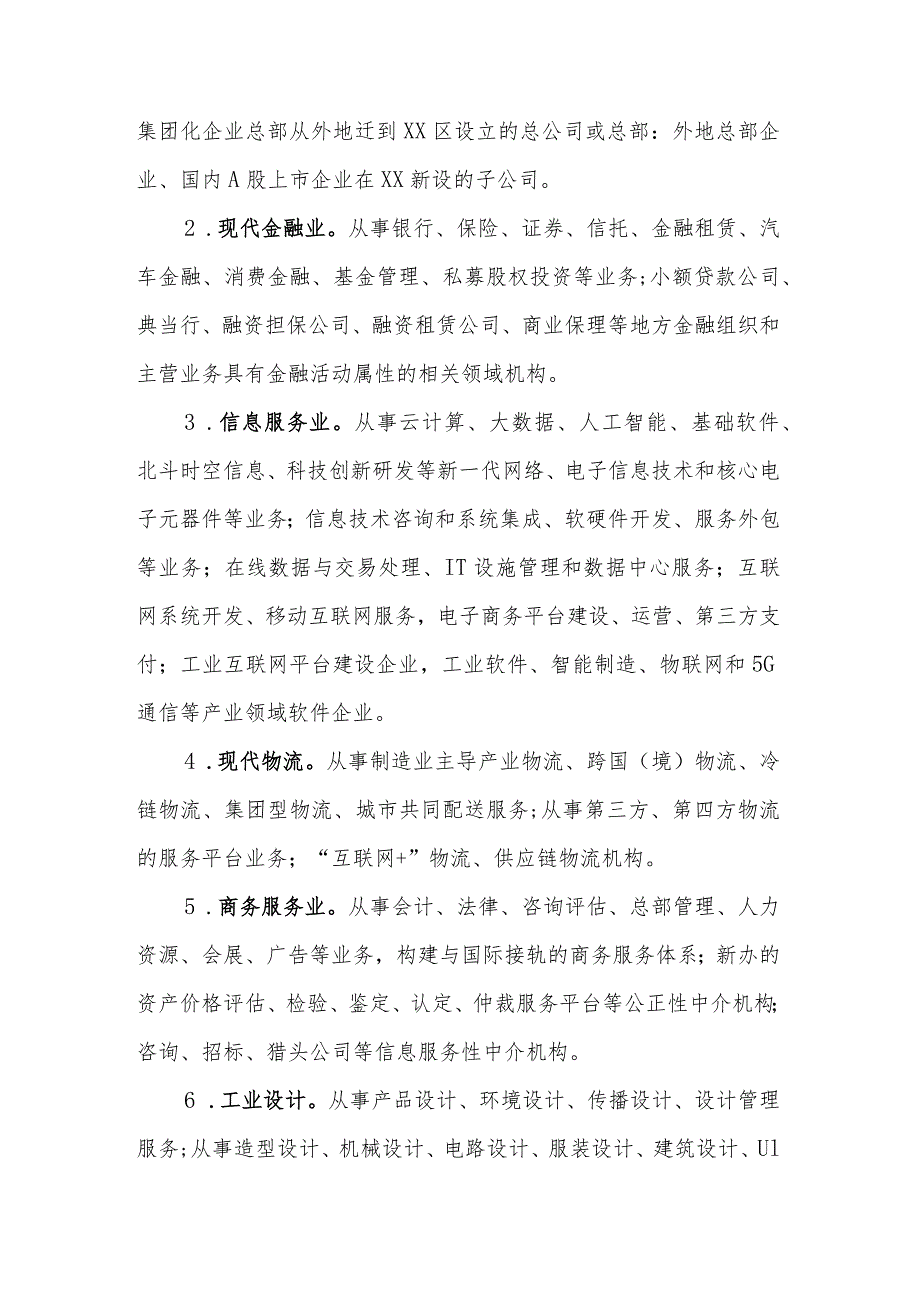 集团化企业总部从外地迁到 XX 区设立的总公司或总部：外地总部企
业、国内 A 股上市企业在 XX 新设的子公司。
2 . 现代金融业。从事银行、保险、证券、信托、金融租赁、汽
车金融、消费金融、基金管理、私募股权投资等业务;小额贷款公司、
典当行、融资担保公司、融资租赁公司、商业保理等地方金融组织和
主营业务具有金融活动属性的相关领域机构。
3 . 信息服务业。从事云计算、大数据、人工智能、基础软件、
北斗时空信息、科技创新研发等新一代网络、电子信息技术和核心电
子元器件等业务；信息技术咨询和系统集成、软硬件开发、服务外包
等业务；在线数据与交易处理、IT 设施管理和数据中心服务；互联
网系统开发、移动互联网服务，电子商务平台建设、运营、第三方支
付；工业互联网平台建设企业，工业软件、智能制造、物联网和 5G
通信等产业领域软件企业。
4 . 现代物流。从事制造业主导产业物流、跨国（境）物流、冷
链物流、集团型物流、城市共同配送服务;从事第三方、第四方物流
的服务平台业务；“互联网+”物流、供应链物流机构。
5 . 商务服务业。从事会计、法律、咨询评估、总部管理、人力
资源、会展、广告等业务，构建与国际接轨的商务服务体系；新办的
资产价格评估、检验、鉴定、认定、仲裁服务平台等公正性中介机构；
咨询、招标、猎头公司等信息服务性中介机构。
6 . 工业设计。从事产品设计、环境设计、传播设计、设计管理
服务;从事造型设计、机械设计、电路设计、服装设计、建筑设计、Ul